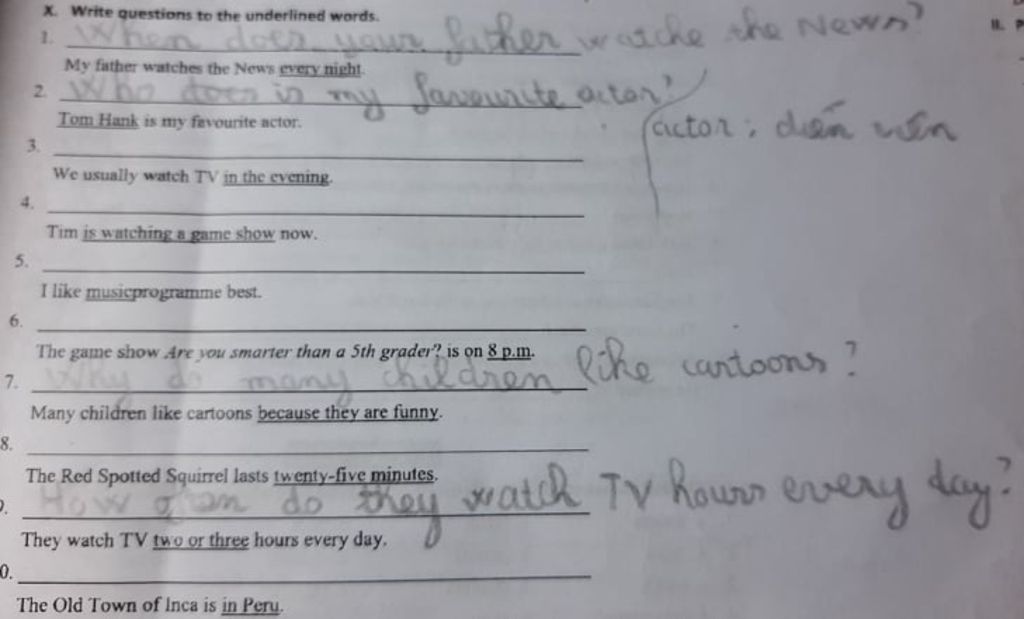 X. Write questions to the underlined words.
II. P
1. When does your father watche the News?
My father watches the News every night.
2. Who does is my favourite actor?
Tom Hank is my favourite actor.
actor: diễn viên
3.
We usually watch TV in the evening.
4.
Tim is watching a game show now.
5.
I like musicprogramme best.
6.
The game show Are you smarter than a 5th grader? is on 8 p.m.
7. Why do many children like cartoons?
Many children like cartoons because they are funny.
8.
The Red Spotted Squirrel lasts twenty-five minutes.
How do they watch TV hours every day?
They watch TV two or three hours every day.
0.
The Old Town of Inca is in Peru.